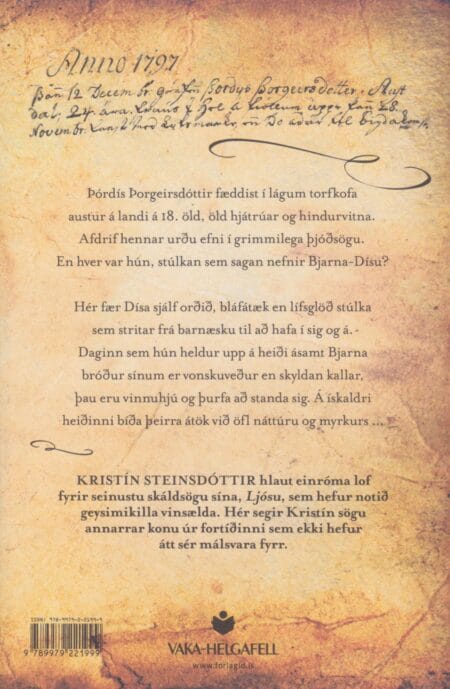 Anno 1797
Þañ 12 Decembr. grafin Þordys Þorgeirsdotter
dal, 24 ára
Novembr.
Þórdís Þorgeirsdóttir fæddist í lágum torfkofa
austur á landi á 18. öld, öld hjátrúar og hindurvitna.
Afdrif hennar urðu efni í grimmilega þjóðsögu.
En hver var hún, stúlkan sem sagan nefnir Bjarna-Dísu?
Hér fær Dísa sjálf orðið, bláfátæk en lífsglöð stúlka
sem stritar frá barnæsku til að hafa í sig og á.
Daginn sem hún heldur upp á heiði ásamt Bjarna
bróður sínum er vonskuveður en skyldan kallar,
þau eru vinnuhjú og þurfa að standa sig. Á ískaldri
heiðinni bíða þeirra átök við öfl náttúru og myrkurs ...
KRISTÍN STEINSDÓTTIR hlaut einróma lof
fyrir seinustu skáldsögu sína, Ljósu, sem hefur notið
geysimikilla vinsælda. Hér segir Kristín sögu
annarrar konu úr fortíðinni sem ekki hefur
átt sér málsvara fyrr.
ISBN 978-9979-2-2199-9
9 789979 221999
VAKA-HELGAFELL
www.forlagid.is